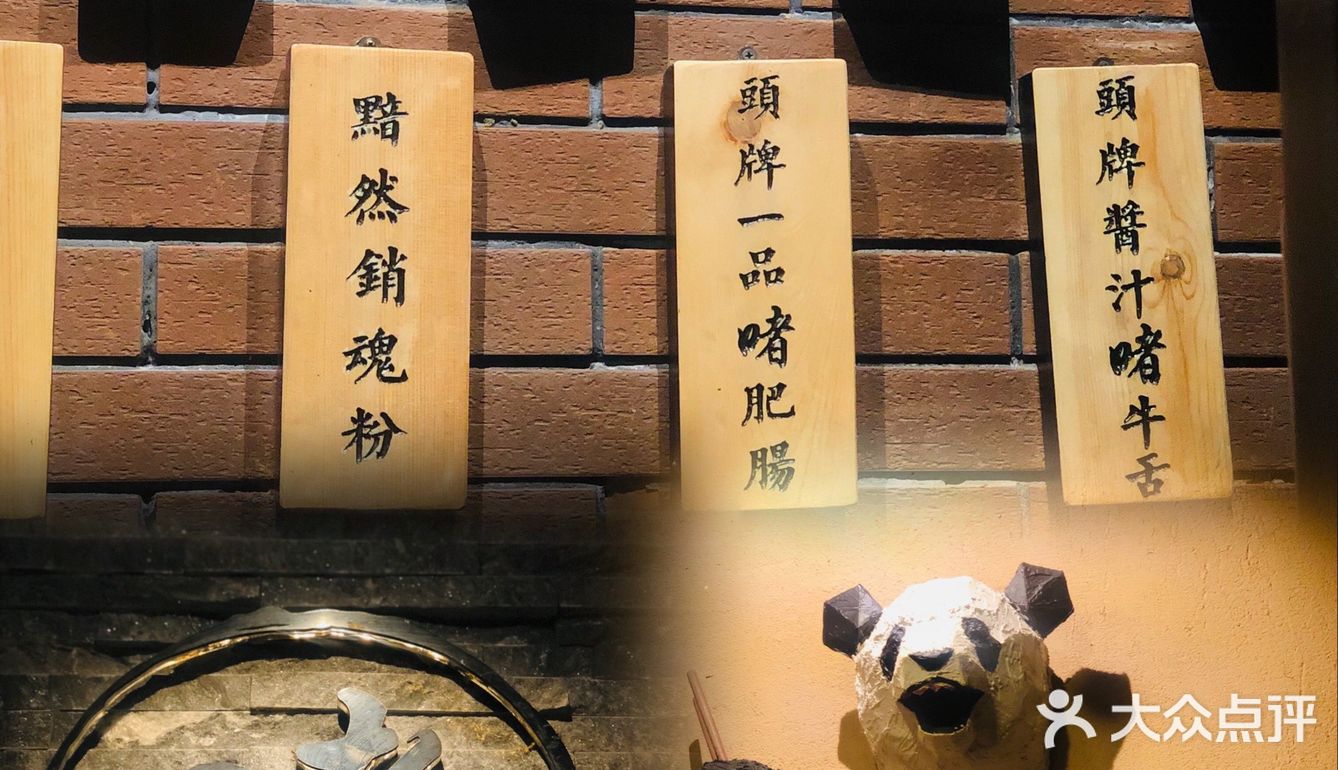 黯然銷魂粉
頭牌一品啫肥腸
頭牌醬汁啫牛舌
大众点评